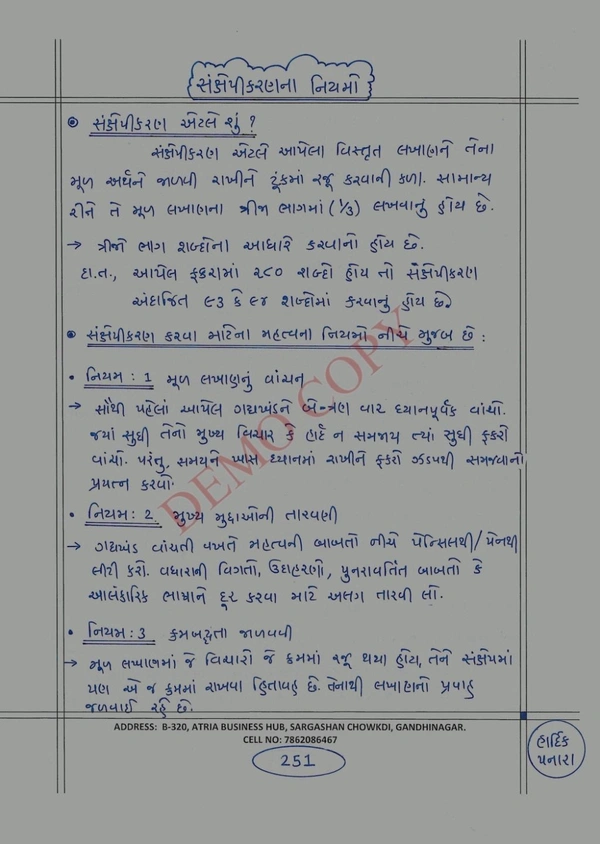 સંક્ષેપીકરણના નિયમો
સંક્ષેપીકરણ એટલે શું ?
સંક્ષેપીકરણ એટલે આપેલા વિસ્તૃત લખાણને તેના
મૂળ અર્થને જાળવી રાખીને ટૂંકમાં રજૂ કરવાની કળા. સામાન્ય
રીતે તે મૂળ લખાણના ત્રીજા ભાગમાં (1/3) લખવાનું હોય છે.
→ ત્રીજો ભાગ શબ્દોના આધારે કરવાનો હોય છે.
દા.ત., આપેલ ફકરામાં ૨૮૦ શબ્દો હોય તો સંક્ષેપીકરણ
અંદાજિત ૯૩ કે ૯૪ શબ્દોમાં કરવાનું હોય છે.
સંક્ષેપીકરણ કરવા માટેના મહત્વના નિયમો નીચે મુજબ છે :
• નિયમ : 1 મૂળ લખાણનું વાંચન
→ સૌથી પહેલાં આપેલ ગદ્યખંડને બે-ત્રણ વાર ધ્યાનપૂર્વક વાંચો.
જ્યાં સુધી તેનો મુખ્ય વિચાર કે હાર્દ ન સમજાય ત્યાં સુધી ફકરો
વાંચો. પરંતુ, સમયને ખાસ ધ્યાનમાં રાખીને ફકરો ઝડપથી સમજવાનો
પ્રયત્ન કરવો.
• નિયમ : 2. મુખ્ય મુદ્દાઓની તારવણી
→ ગદ્યખંડ વાંચતી વખતે મહત્વની બાબતો નીચે પેન્સિલથી/પેનથી
લીટી કરો. વધારાની વિગતો, ઉદાહરણો, પુનરાવર્તિત બાબતો કે
આલંકારિક ભાષાને દૂર કરવા માટે અલગ તારવી લો.
• નિયમ : 3 ક્રમબદ્ધતા જાળવવી
→ મૂળ લખાણમાં જે વિચારો જે ક્રમમાં રજૂ થયા હોય, તેને સંક્ષેપમાં
પણ એ જ ક્રમમાં રાખવા હિતાવહ છે. તેનાથી લખાણનો પ્રવાહ
જળવાઈ રહે છે.
DEMO COPY
ADDRESS: B-320, ATRIA BUSINESS HUB, SARGASHAN CHOWKDI, GANDHINAGAR.
CELL NO: 7862086467
251
હાર્દિક
પનારા